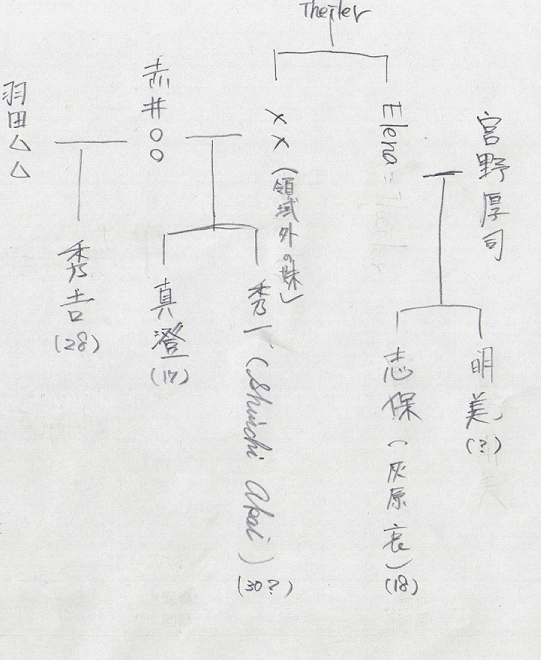 Theiler
宮野厚司
Elena
××(領域外の妹)
赤井○○
羽田△△
明美(?)
志保(灰原哀)(18)
秀一(Shuichi Akai)(30?)
真澄(17)
秀吉(28)